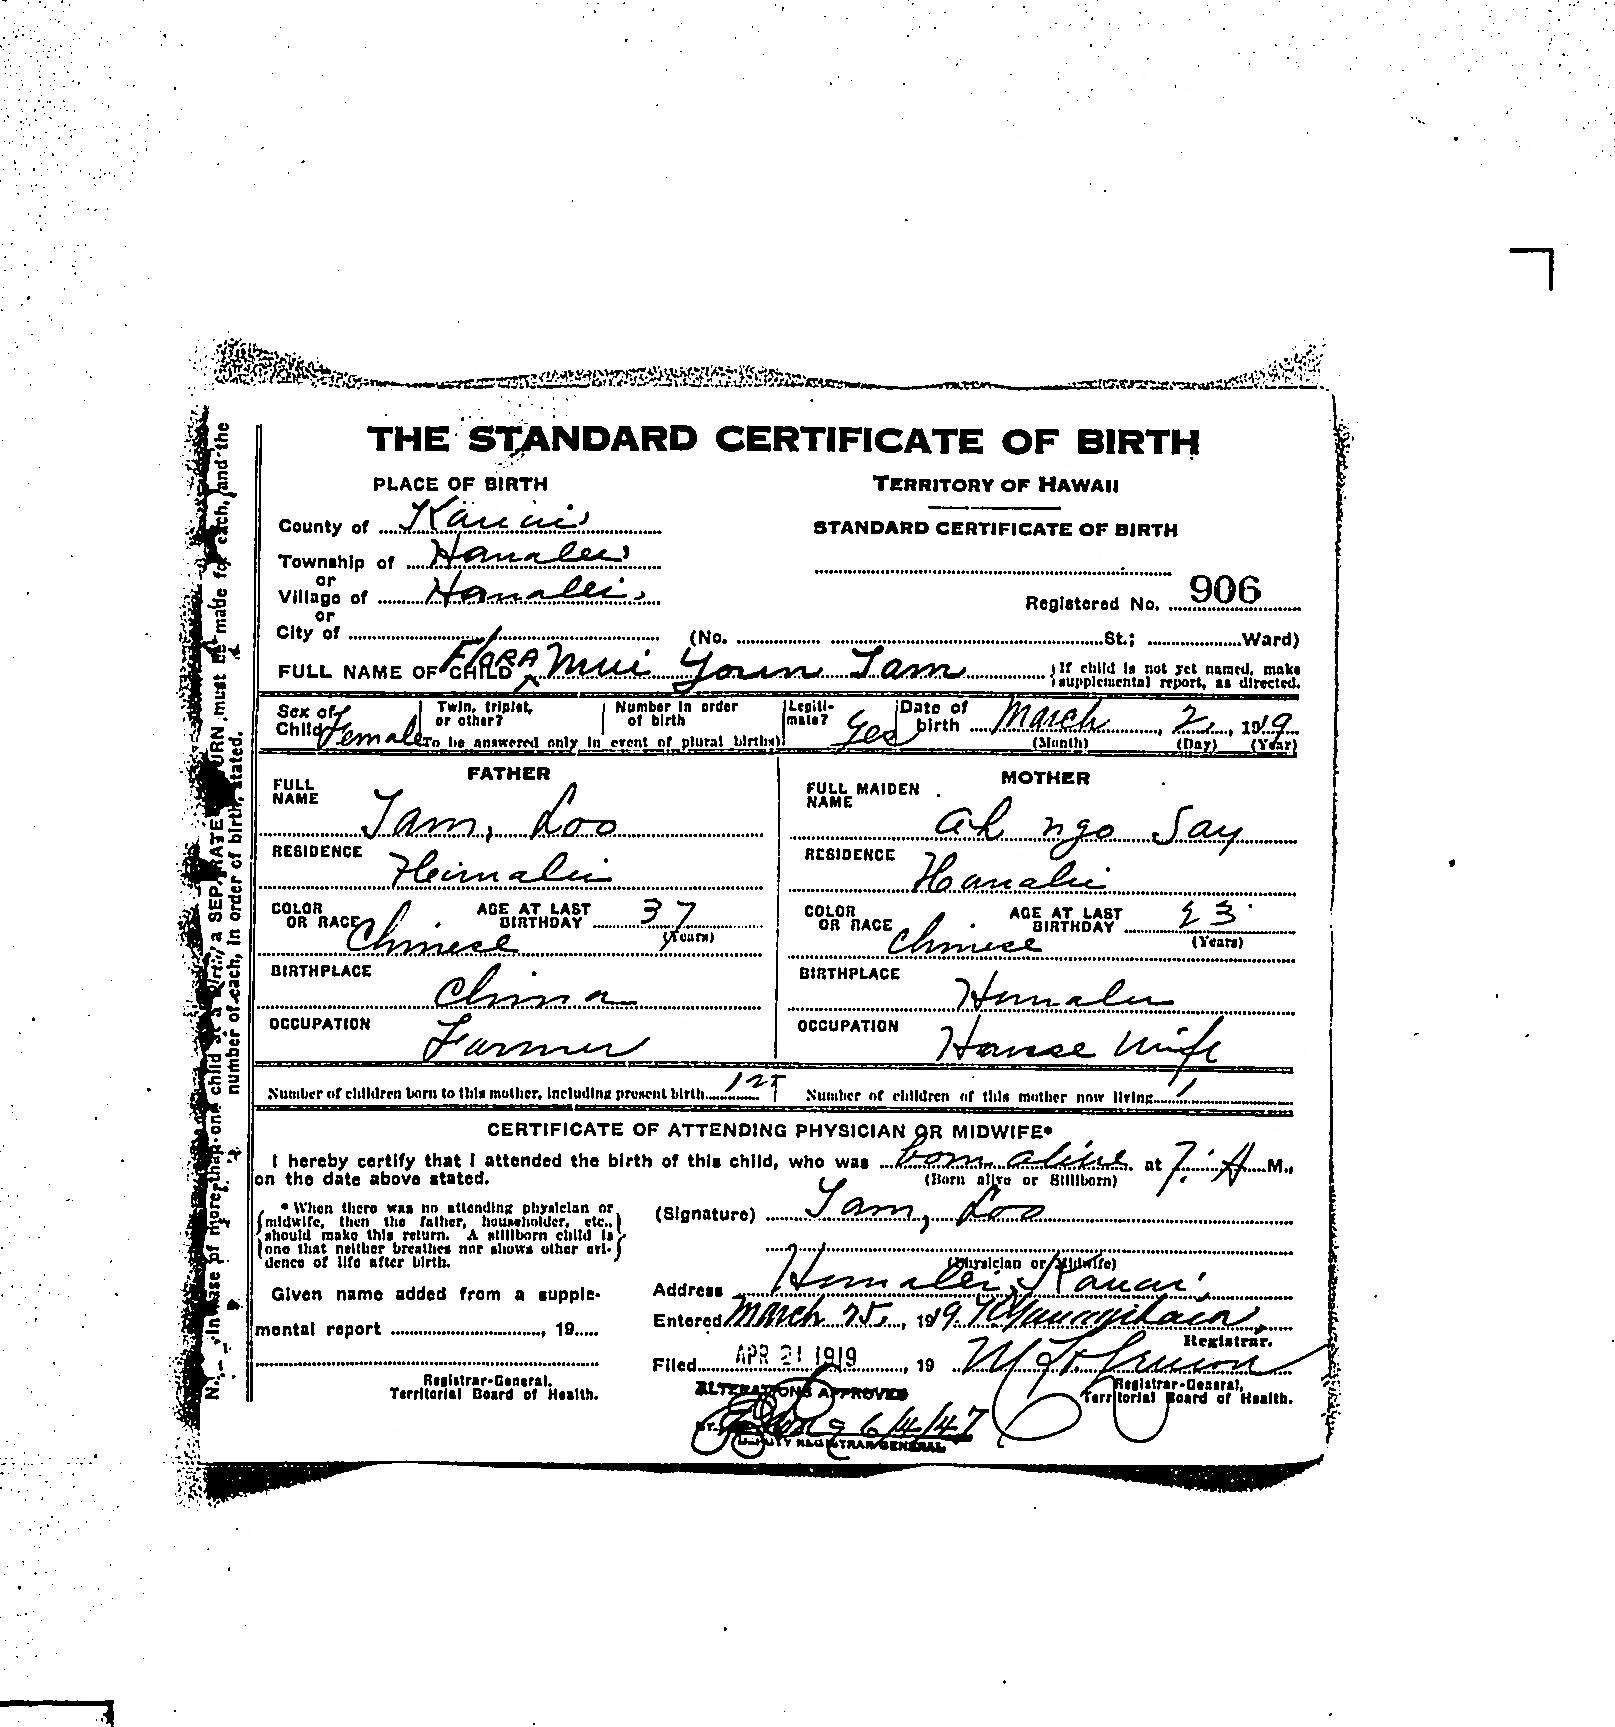 THE STANDARD CERTIFICATE OF BIRTH
PLACE OF BIRTH
TERRITORY OF HAWAII
STANDARD CERTIFICATE OF BIRTH
County of Kauai
Township of Hanalei
or
Village of Hanalei
or
City of (No. St.; Ward)
Registered No. 906
FULL NAME OF CHILD FLORA Mui Youn Tam
If child is not yet named, make
supplemental report, as directed.
Sex of Child Female
Twin, triplet, or other?
Number in order of birth
(To be answered only in event of plural births)
Legiti-mate? Yes
Date of birth March 2, 1919
(Month) (Day) (Year)
FATHER
FULL NAME
Tam, Loo
RESIDENCE
Hanalei
COLOR OR RACE Chinese
AGE AT LAST BIRTHDAY 37
(Years)
BIRTHPLACE
China
OCCUPATION
Farmer
MOTHER
FULL MAIDEN NAME
Ah ngo Say
RESIDENCE
Hanalei
COLOR OR RACE Chinese
AGE AT LAST BIRTHDAY 23
(Years)
BIRTHPLACE
Hanalei
OCCUPATION
House Wife
Number of children born to this mother, including present birth 1st
Number of children of this mother now living 1
CERTIFICATE OF ATTENDING PHYSICIAN OR MIDWIFE*
I hereby certify that I attended the birth of this child, who was born alive at 7: A M.,
(Born alive or Stillborn)
on the date above stated.
* When there was no attending physician or
midwife, then the father, householder, etc.,
should make this return. A stillborn child is
one that neither breathes nor shows other evi-
dence of life after birth.
(Signature) Tam, Loo
(Physician or Midwife)
Given name added from a supple-
mental report , 19
Registrar-General,
Territorial Board of Health.
Address Hanalei, Kauai,
Entered March 25, 1919.
Registrar.
Filed APR 21 1919, 19
Registrar-General,
Territorial Board of Health.
ALTERATIONS APPROVED
6/4/47
DEPUTY REGISTRAR GENERAL
N. B.—In case of more than one child at a birth, a SEPARATE RETURN must be made for each, and the
number of each, in order of birth, stated.